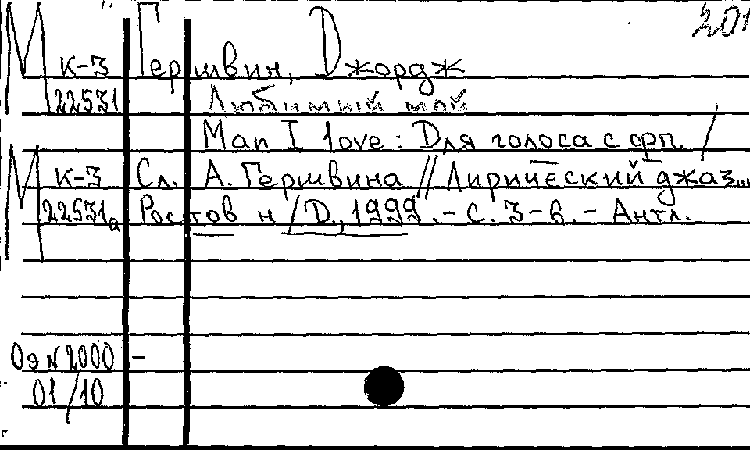 201
М К-3 Гершвин, Джордж
22531 Любимый мой
Man I love: Для голоса с фп. /
М К-3 Сл. А. Гершвина // Лирический джаз...
22531а Ростов н/Д., 1999. - С. 3-6. - Англ.
Оэ N 2000 -
01/10